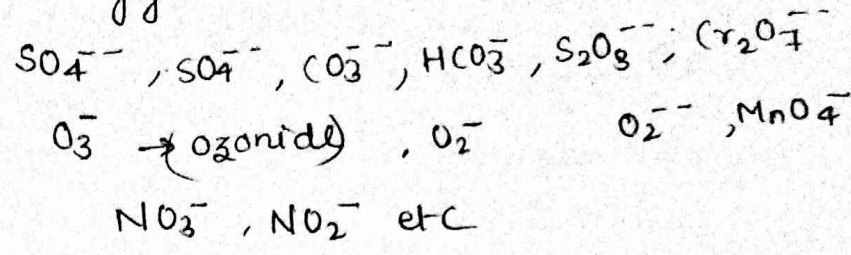 SO4⁻⁻, SO4⁻⁻, CO3⁻⁻, HCO3⁻, S2O8⁻⁻; Cr2O7⁻⁻
O3⁻ → (ozonide), O2⁻ O2⁻⁻, MnO4⁻
NO3⁻, NO2⁻ etc